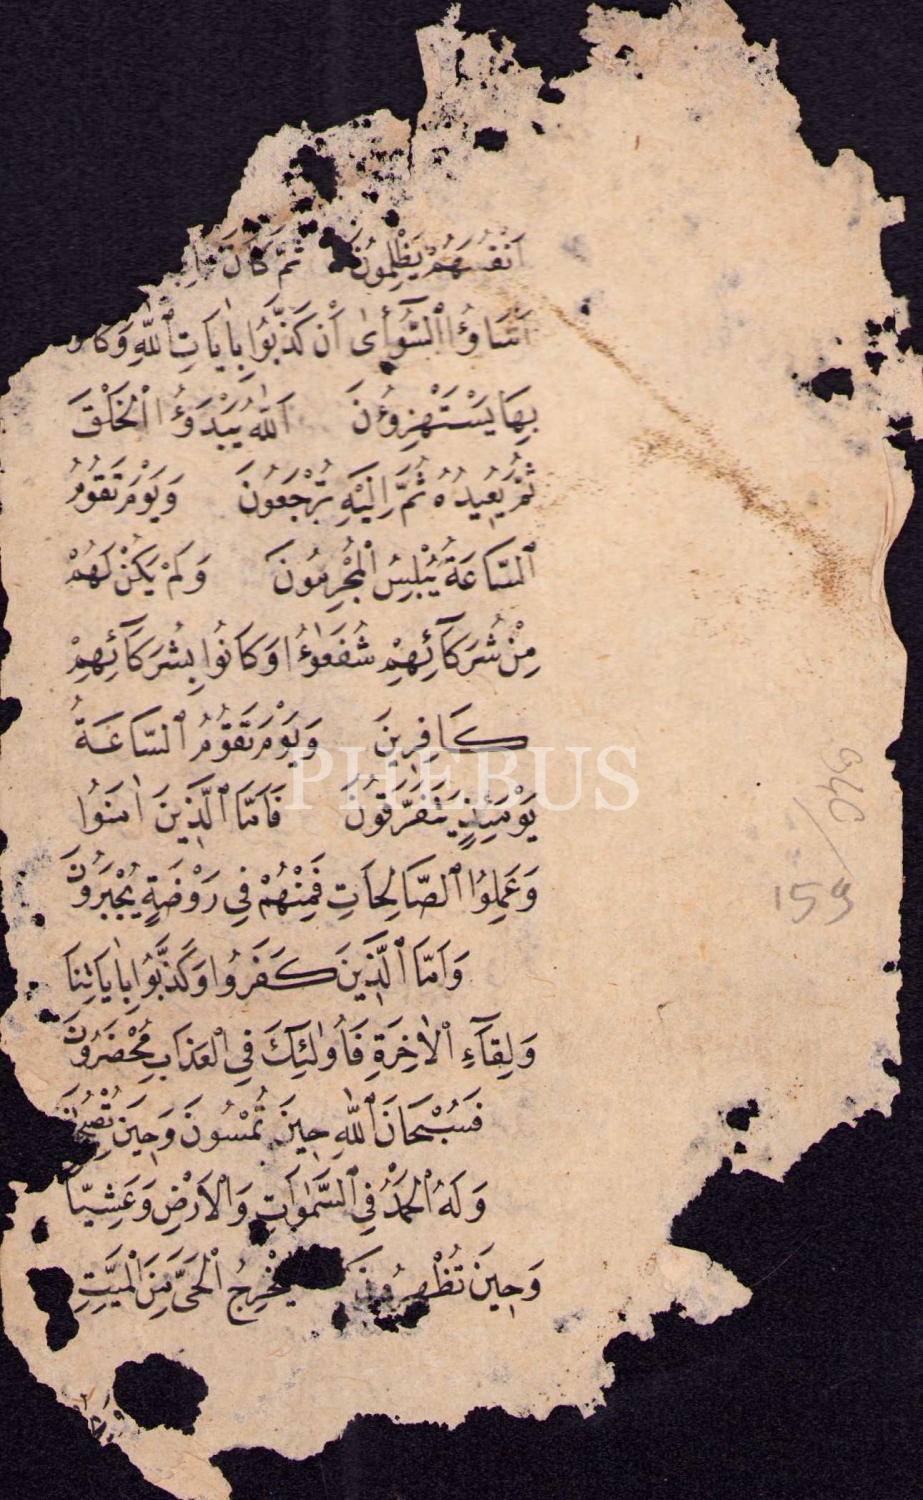 اَنْفُسَهُمْ يَظْلِمُونَ ثُمَّ كَانَ
اَسَاؤُا ٱلسُّوأٰى اَنْ كَذَّبُوا بِاٰيَاتِ ٱللّٰهِ وَكَانُوا
بِهَا يَسْتَهْزِؤُنَ اَللّٰهُ يَبْدَؤُا ٱلْخَلْقَ
ثُمَّ يُعِيدُهُ ثُمَّ اِلَيْهِ تُرْجَعُونَ وَيَوْمَ تَقُومُ
ٱلسَّاعَةُ يُبْلِسُ ٱلْمُجْرِمُونَ وَلَمْ يَكُنْ لَهُمْ
مِنْ شُرَكَآئِهِمْ شُفَعٰٓؤُا وَكَانُوا بِشُرَكَآئِهِمْ
كَافِرِينَ وَيَوْمَ تَقُومُ ٱلسَّاعَةُ
يَوْمَئِذٍ يَتَفَرَّقُونَ فَاَمَّا ٱلَّذِينَ اٰمَنُوا
وَعَمِلُوا ٱلصَّالِحَاتِ فَمِنْهُمْ فِي رَوْضَةٍ يُحْبَرُونَ
وَاَمَّا ٱلَّذِينَ كَفَرُوا وَكَذَّبُوا بِاٰيَاتِنَا
وَلِقَآءِ ٱلْاٰخِرَةِ فَاُولٰئِكَ فِي ٱلْعَذَابِ مُحْضَرُونَ
فَسُبْحَانَ ٱللّٰهِ حِينَ تُمْسُونَ وَحِينَ تُصْبِحُونَ
وَلَهُ ٱلْحَمْدُ فِي ٱلسَّمٰوَاتِ وَٱلْاَرْضِ وَعَشِيًّا
وَحِينَ تُظْهِرُونَ يُخْرِجُ ٱلْحَيَّ مِنَ ٱلْمَيِّتِ
940/
159
PHEBUS